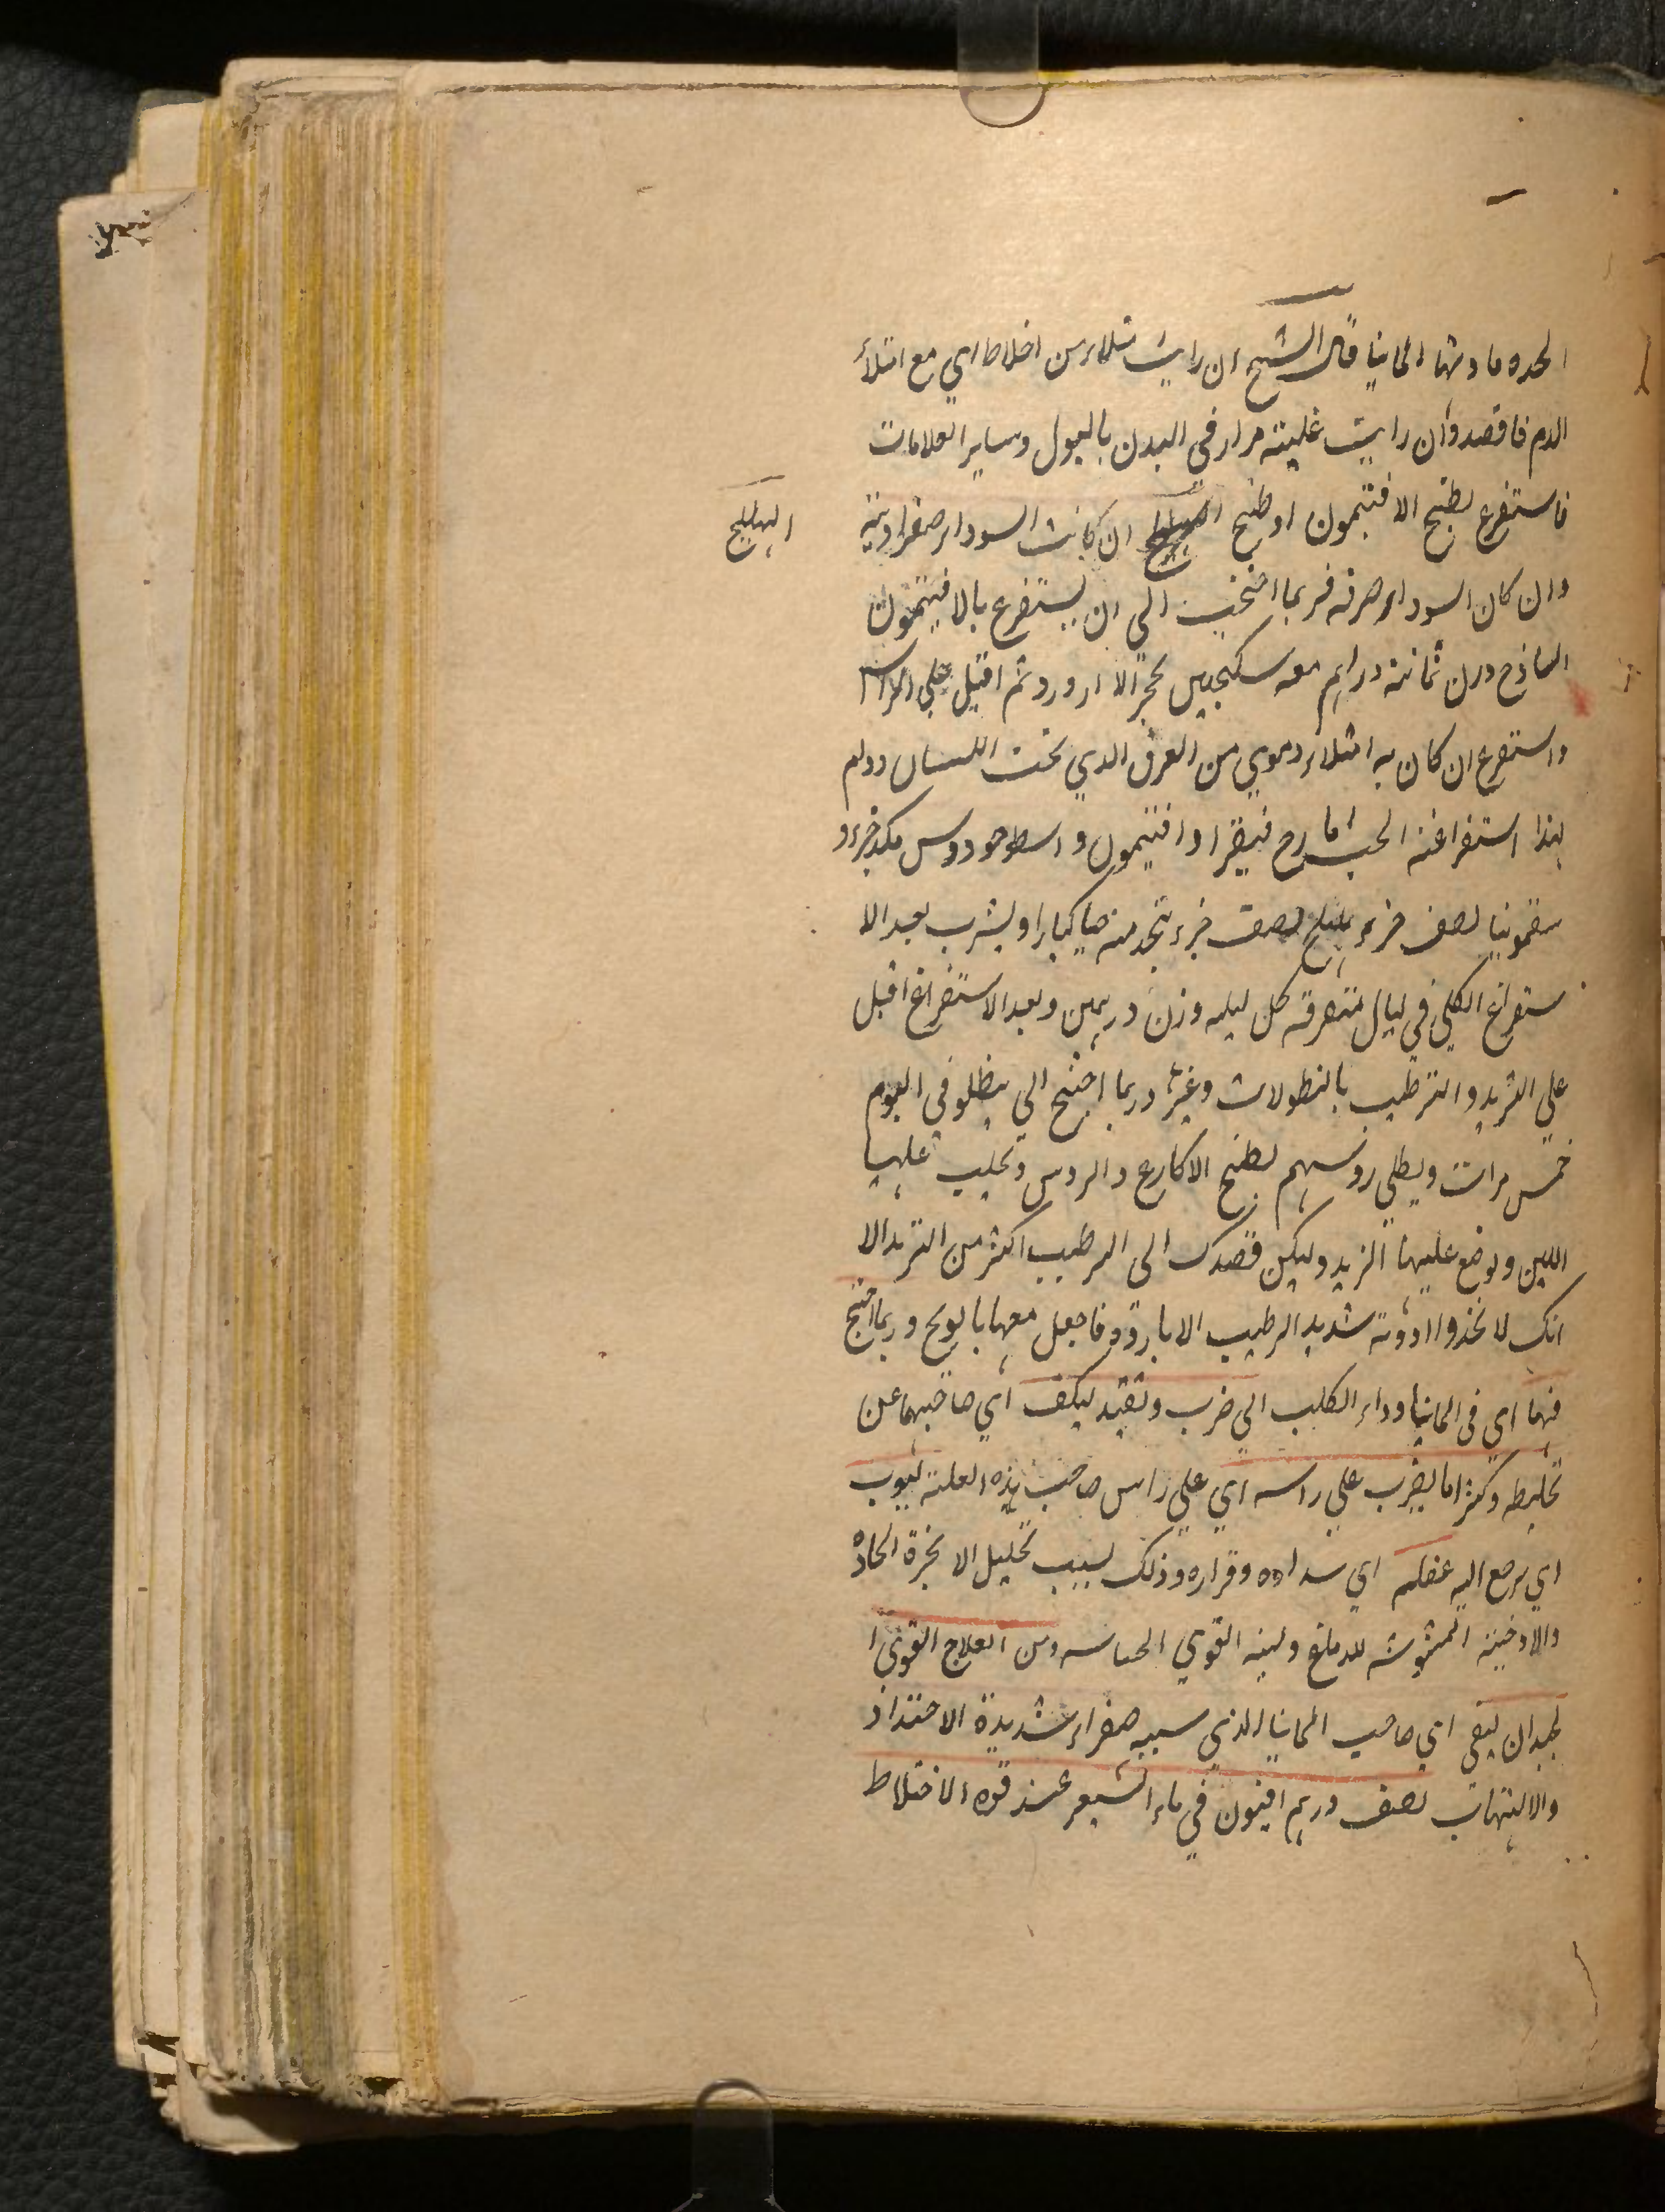 الحده مادتها المانيا قال الشيخ ان رايت امتلاء من اخلاط اي مع امتلاء
الدم فافصد وان رايت غلبته مرار في البدن بالبول وساير العلامات
فاستفرغ بطبخ الافتيمون او طبخ ان كانت السوداء صفراويته
الهليلج
وان كان السوداء صرفه فربما احتجت الى ان يستفرغ بالافتيمون
الساذج وزن ثمانية دراهم معه سكنجبين بحجر الاارورد ثم اقبل على الراس
واستفرغ ان كان به امتلاء دموي من العرق الذي تحت اللسان ودم
لهذا استفراغته الحب ايارج فيقرا وافتيمون واسطوخودوس مكد جزء و
سقمونيا نصف جزء هليلج نصف جزء يتخد منه حبا كبارا ويشرب بعد الا
ستفراغ الكلي في ليال متفرقه كل ليله وزن درهمين وبعد الاستفراغ اقبل
علي التبريد والترطيب بالنطولات وغيرها وربما احتيج الي ينطلو في اليوم
خمس مرات ويطلي روسهم بطبخ الاكارع والروس وتحليب عليها
اللبن ويوضع عليها الزبد وليكن قصدك الى الترطيب اكثر من التبريد الا
انك لا تجد ادوية شديد الترطيب الا باردة فاجعل معها بابونج وربما احتيج
فيها اي في المانيا وداء الكلب الي ضرب وتقييد ليكف اي صاحبهما عن
تخليطه وكثيرا ما يضرب علي راسه اي علي راس صاحب هذه العلته ليوب
اي يرجع اليه عقله اي سداده وقراره وذلك بسبب تحليل الابخرة الحادة
والادخنة المشوشه للدماغ ولينه القوي الحساسه ومن العلاج القوي ا
لجيد ان يسقى اي صاحب المانيا الذي سببه صفراء شديدة الاحتداد
والالتهاب نصف درهم افيون في ماء الشعير عند قوه الاختلاط